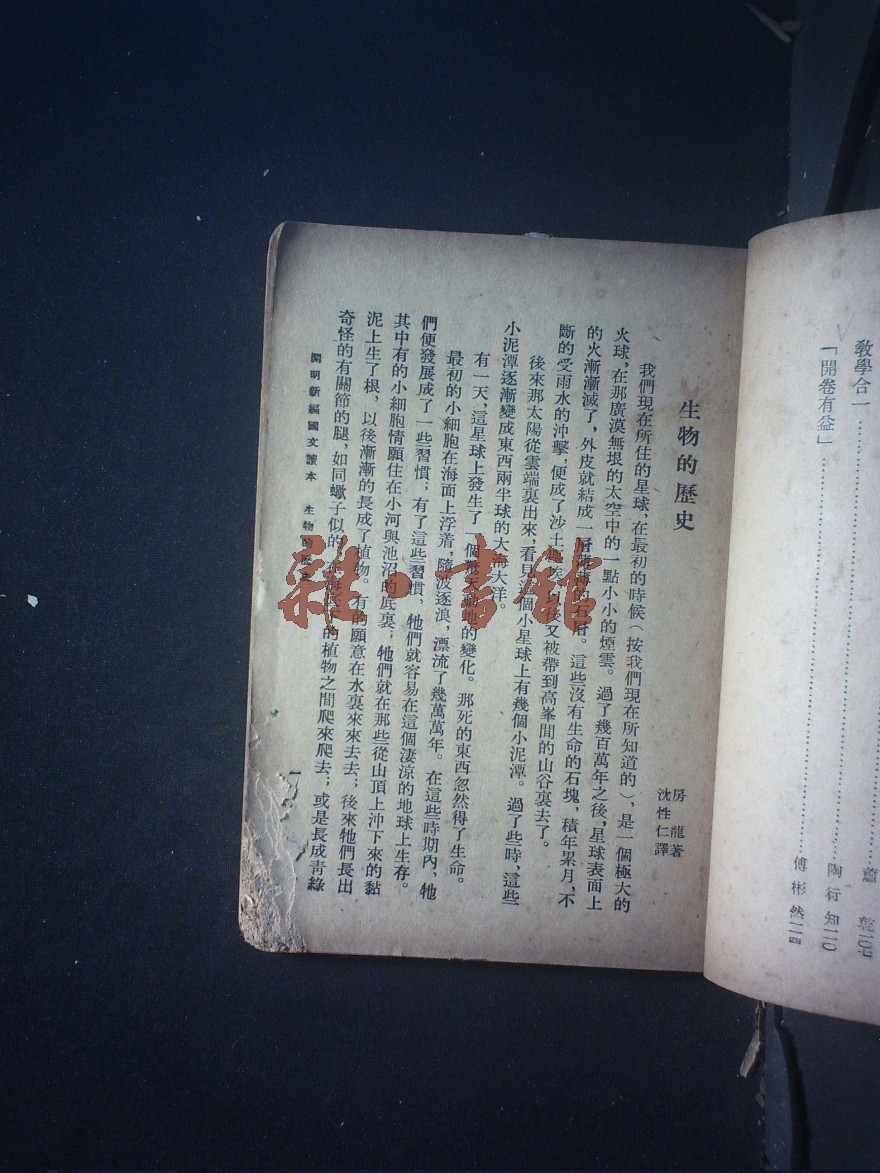 生物的歷史
房龍著
沈性仁譯
我們現在所住的星球，在最初的時候（按我們現在所知道的），是一個極大的
火球，在那廣漠無垠的太空中的一點小小的煙雲。過了幾百萬年之後，星球表面上
的火漸漸滅了，外皮就結成一層薄薄的石層。這些沒有生命的石塊，積年累月，不
斷的受雨水的沖擊，便成了沙土，以後又被帶到高峯間的山谷裏去了。
後來那太陽從雲端裏出來，看見這個小星球上有幾個小泥潭。過了些時，這些
小泥潭逐漸變成東西兩半球的大海大洋。
有一天，這星球上發生了一個驚天動地的變化。那死的東西忽然得了生命。
最初的小細胞在海面上浮着，隨波逐浪，漂流了幾萬萬年。在這些時期內，牠
們便發展成了一些習慣；有了這些習慣，牠們就容易在這個淒涼的地球上生存。
其中有的小細胞情願住在小河與池沼的底裏；牠們就在那些從山頂上沖下來的黏
泥上生了根，以後漸漸的長成了植物。有的願意在水裏來來去去；後來牠們長出
奇怪的有關節的腿，如同蠍子似的，在海底下的植物之間爬來爬去；或是長成青綠
開明新編國文讀本 生物的歷史
一
蕭乾 一〇七
教學合一 陶行知 一一〇
「開卷有益」 傅彬然 一一四
雜·書館